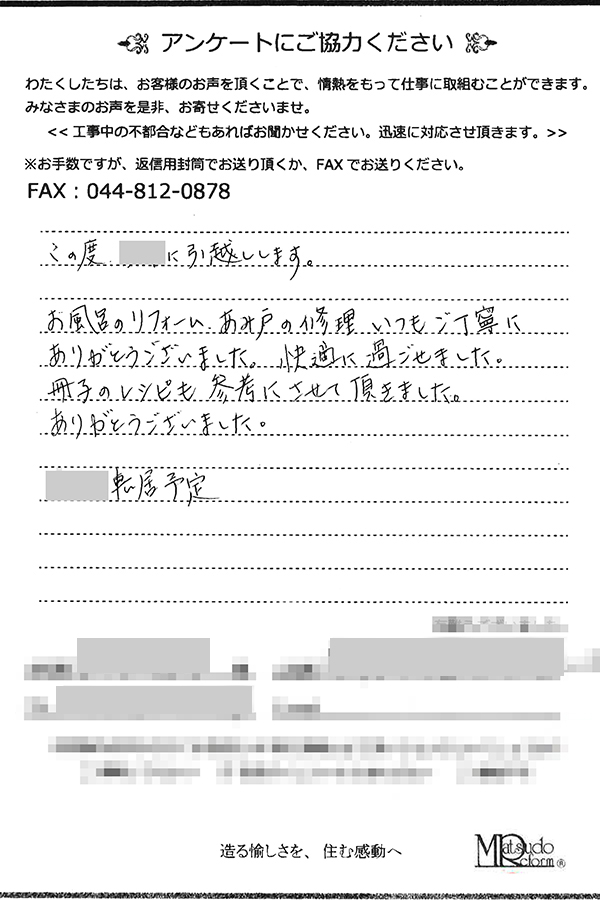 アンケートにご協力ください
わたくしたちは、お客様のお声を頂くことで、情熱をもって仕事に取組むことができます。
みなさまのお声を是非、お寄せくださいませ。
<< 工事中の不都合などもあればお聞かせください。迅速に対応させ頂きます。>>
※お手数ですが、返信用封筒でお送り頂くか、FAX でお送りください。
FAX：044-812-0878
この度 に引越しします。
お風呂のリフォーム、あみ戸の修理 いつもご丁寧に
ありがとうございました。快適に過ごせました。
冊子のレシピも参考にさせて頂きました。
ありがとうございました。
転居予定
造る愉しさを、住む感動へ
Matsudo
Reform ®